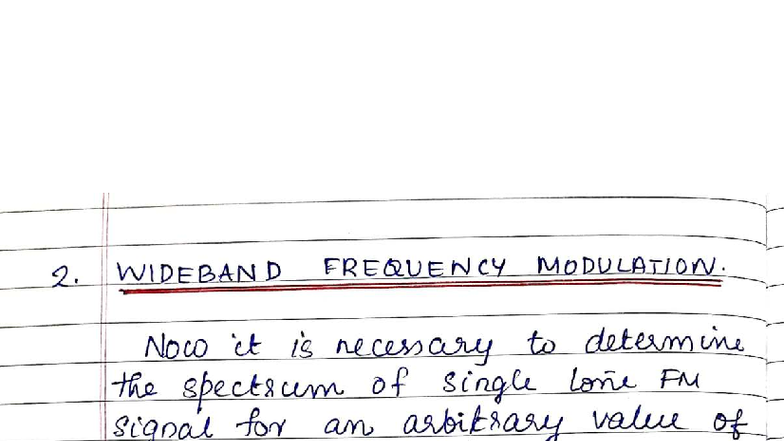 2. WIDEBAND FREQUENCY MODULATION.
Now it is necessary to determine
the spectrum of single tone FM
signal for an arbitrary value of